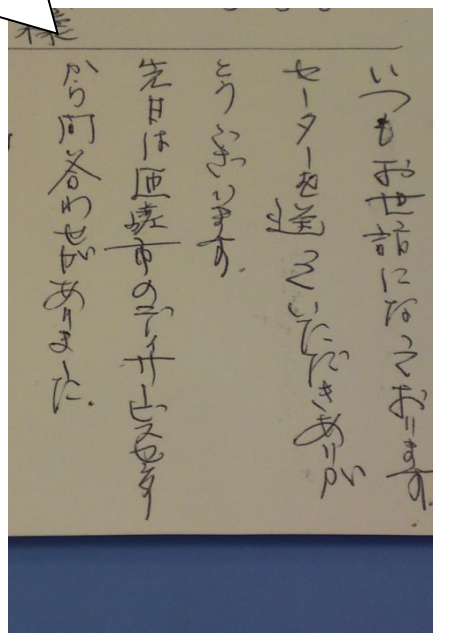 様
いつもお世話になっております。
セーターを送っていただきありが
とうございます。
先日は匝瑳市のデイサービスセンター
から問合わせがありました。